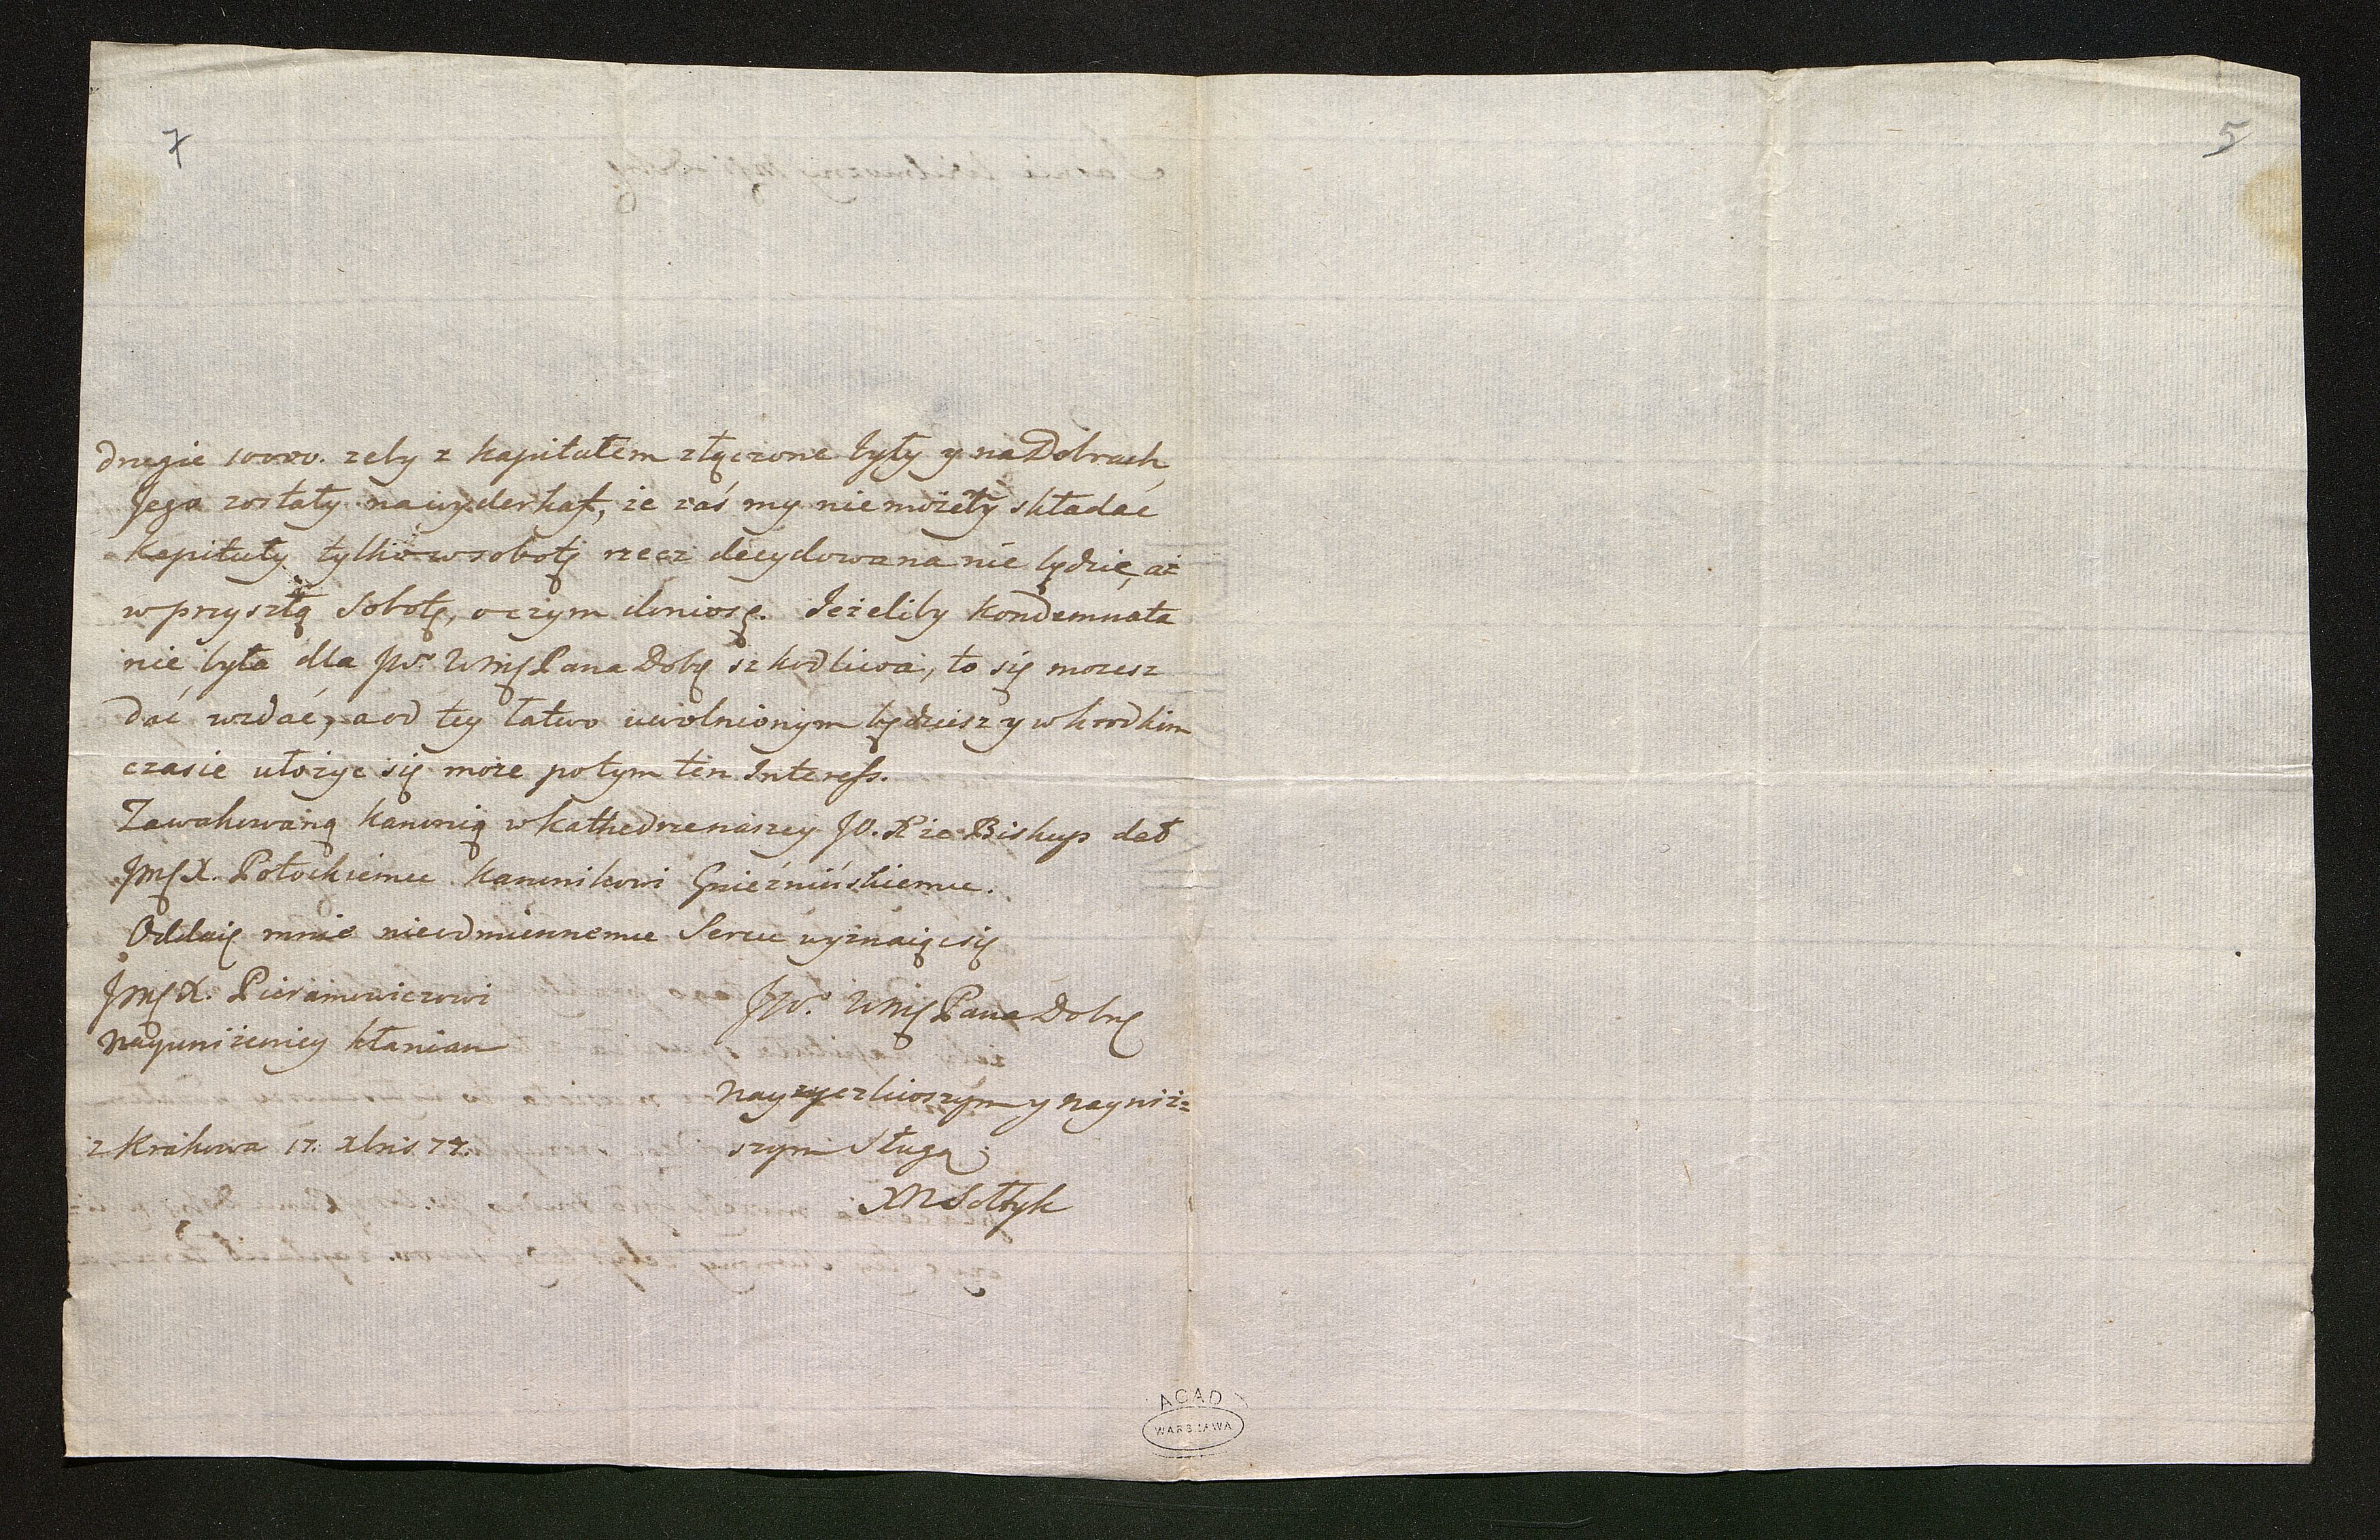 7
5
drugie 10000. zeby z kapitułem złączone były y na Dobrach
Jego zostały na wyderkaf, że zaś my nie możemy składać
Kapituły tylko w sobotę rzecz decydowana nie będzie, aż
w przyszłą Sobotę, o czym doniosę. Jeżeliby kondemnata
nie była dla JW. WMę Pana Dobę szkodliwa, to się mozesz
dać wzdać, a od tey łatwo uwolnionym będziesz y w krodkim
czasie ułożyc się może potym ten Interess.
Zawakowaną kanonią w kathedrze naszey JO. Xże Biskup dał
JMę X. Potockiemu kanonikowi Gnieźnińskiemu.
Oddaię mnie nieodmiennemu Sercu wyznaiąc się
JMę X. Pieramowiczowi
nayuniżeniey kłaniam
JW. WMę Pana Dobrę
nayzyczliwszym y nayniż=
szym Sługą
z Krakowa 17. xbris 74.
XM Sołtyk
AGAD
WARSZAWA